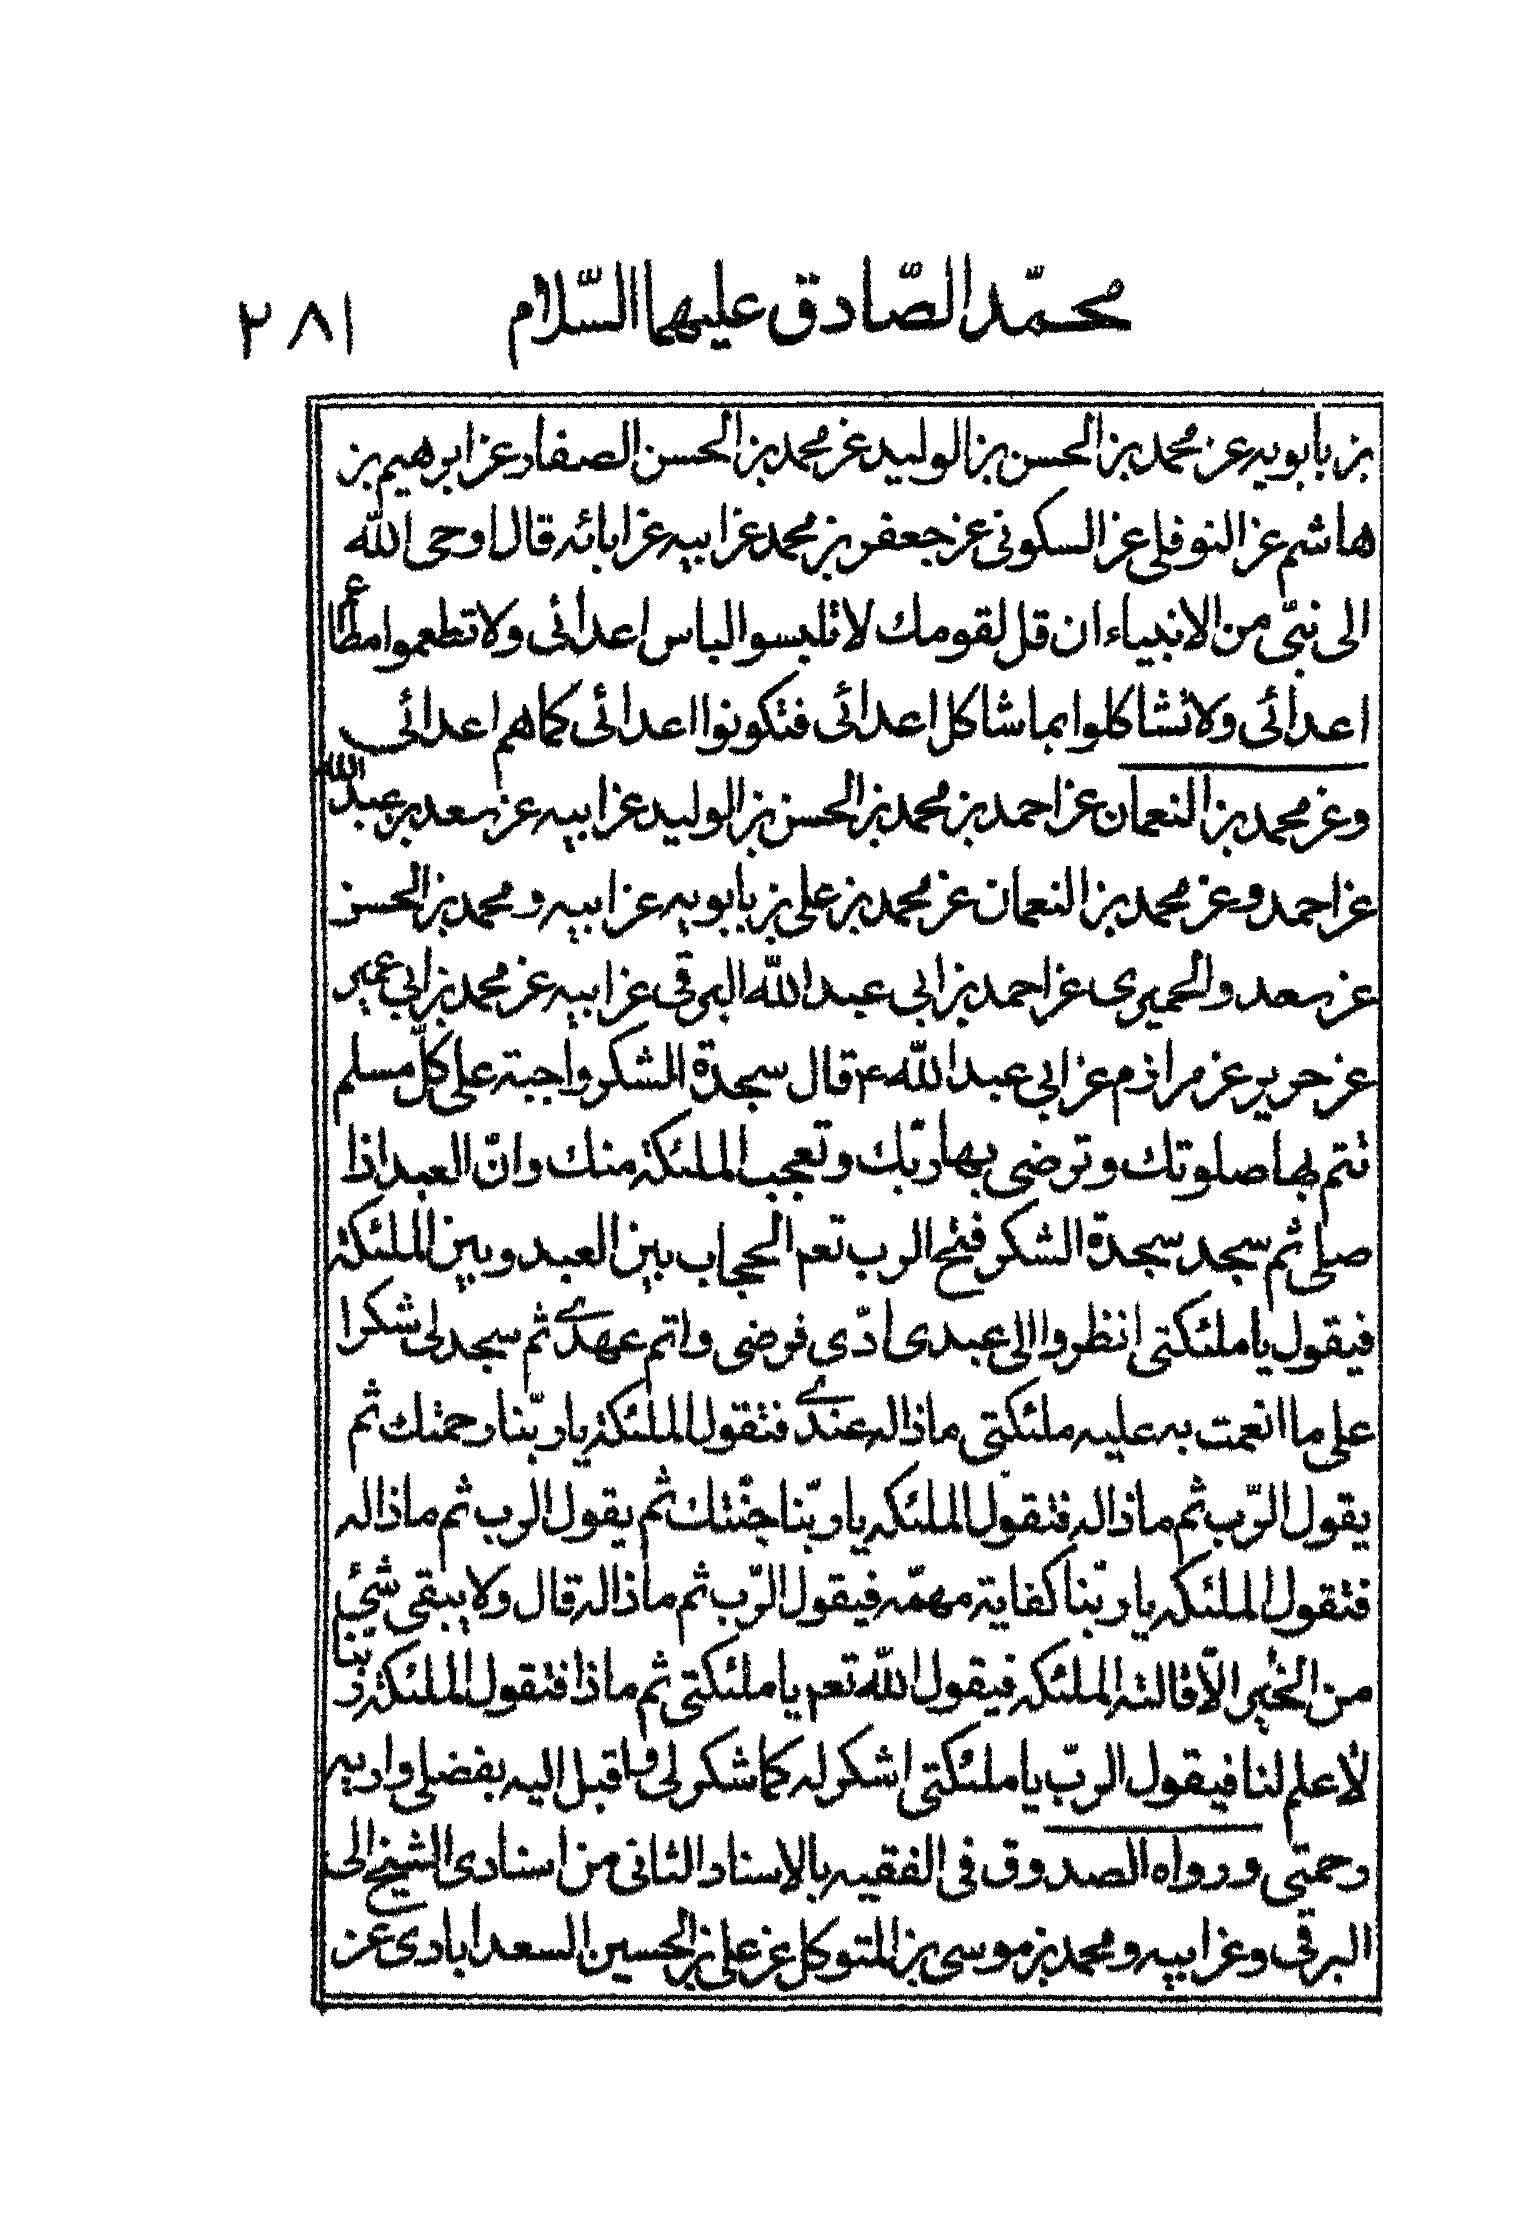 محمّد الصّادق عليهما السّلام ٢٨١
بن بابويه عن محمد بن الحسن بن الوليد عن محمد بن الحسن الصفار عن ابرهيم بن
هاشم عن النوفلى عن السكونى عن جعفر بن محمد عن ابيه عن ابائه قال اوحى الله
الى نبىّ من الانبياء ان قل لقومك لا تلبسوا لباس اعدائى ولا تطعموا مطاعم
اعدائى ولا تشاكلوا بما شاكل اعدائى فتكونوا اعدائى كما هم اعدائى
وعن محمد بن النعمان عن احمد بن محمد بن الحسن بن الوليد عن ابيه عن سعد بن عبد الله
عن احمد وعن محمد بن النعمان عن محمد بن على بن بابويه عن ابيه و محمد بن الحسن
عن سعد والحميرى عن احمد بن ابى عبد الله البرقى عن ابيه عن محمد بن ابى عمير
عن حريز عن مرازم عن ابى عبد الله ع قال سجدة الشكر واجبة على كلّ مسلم
تتم بها صلوتك وترضى بها ربّك وتعجب الملئكة منك وانّ العبد اذا
صلى ثم سجد سجدة الشكر فتح الرب تعم الحجاب بين العبد وبين الملئكة
فيقول يا ملئكتى انظروا الى عبدى ادّى فرضى واتم عهدى ثم سجد لى شكرا
على ما انعمت به عليه ملئكتى ماذا له عندى فتقول الملئكة يا ربّنا رحمتك ثم
يقول الرّب ثم ماذا له فتقول الملئكه يا ربّنا جنّتك ثم يقول الرب ثم ماذا له
فتقول الملئكه يا ربّنا كفاية مهمّه فيقول الرّب ثم ماذا له قال ولا يبقى شئ
من الخير الّا قالته الملئكه فيقول الله تعم يا ملئكتى ثم ماذا فتقول الملئكة ربّنا
لا علم لنا فيقول الربّ يا ملئكتى اشكر له كما شكر لى واقبل اليه بفضلى واريه
رحمتى ورواه الصدوق فى الفقيه بالاسناد الثانى من اسنادى الشيخ الى
البرقى وعن ابيه ومحمد بن موسى بن المتوكل عن على بن الحسين السعد ابادى عن